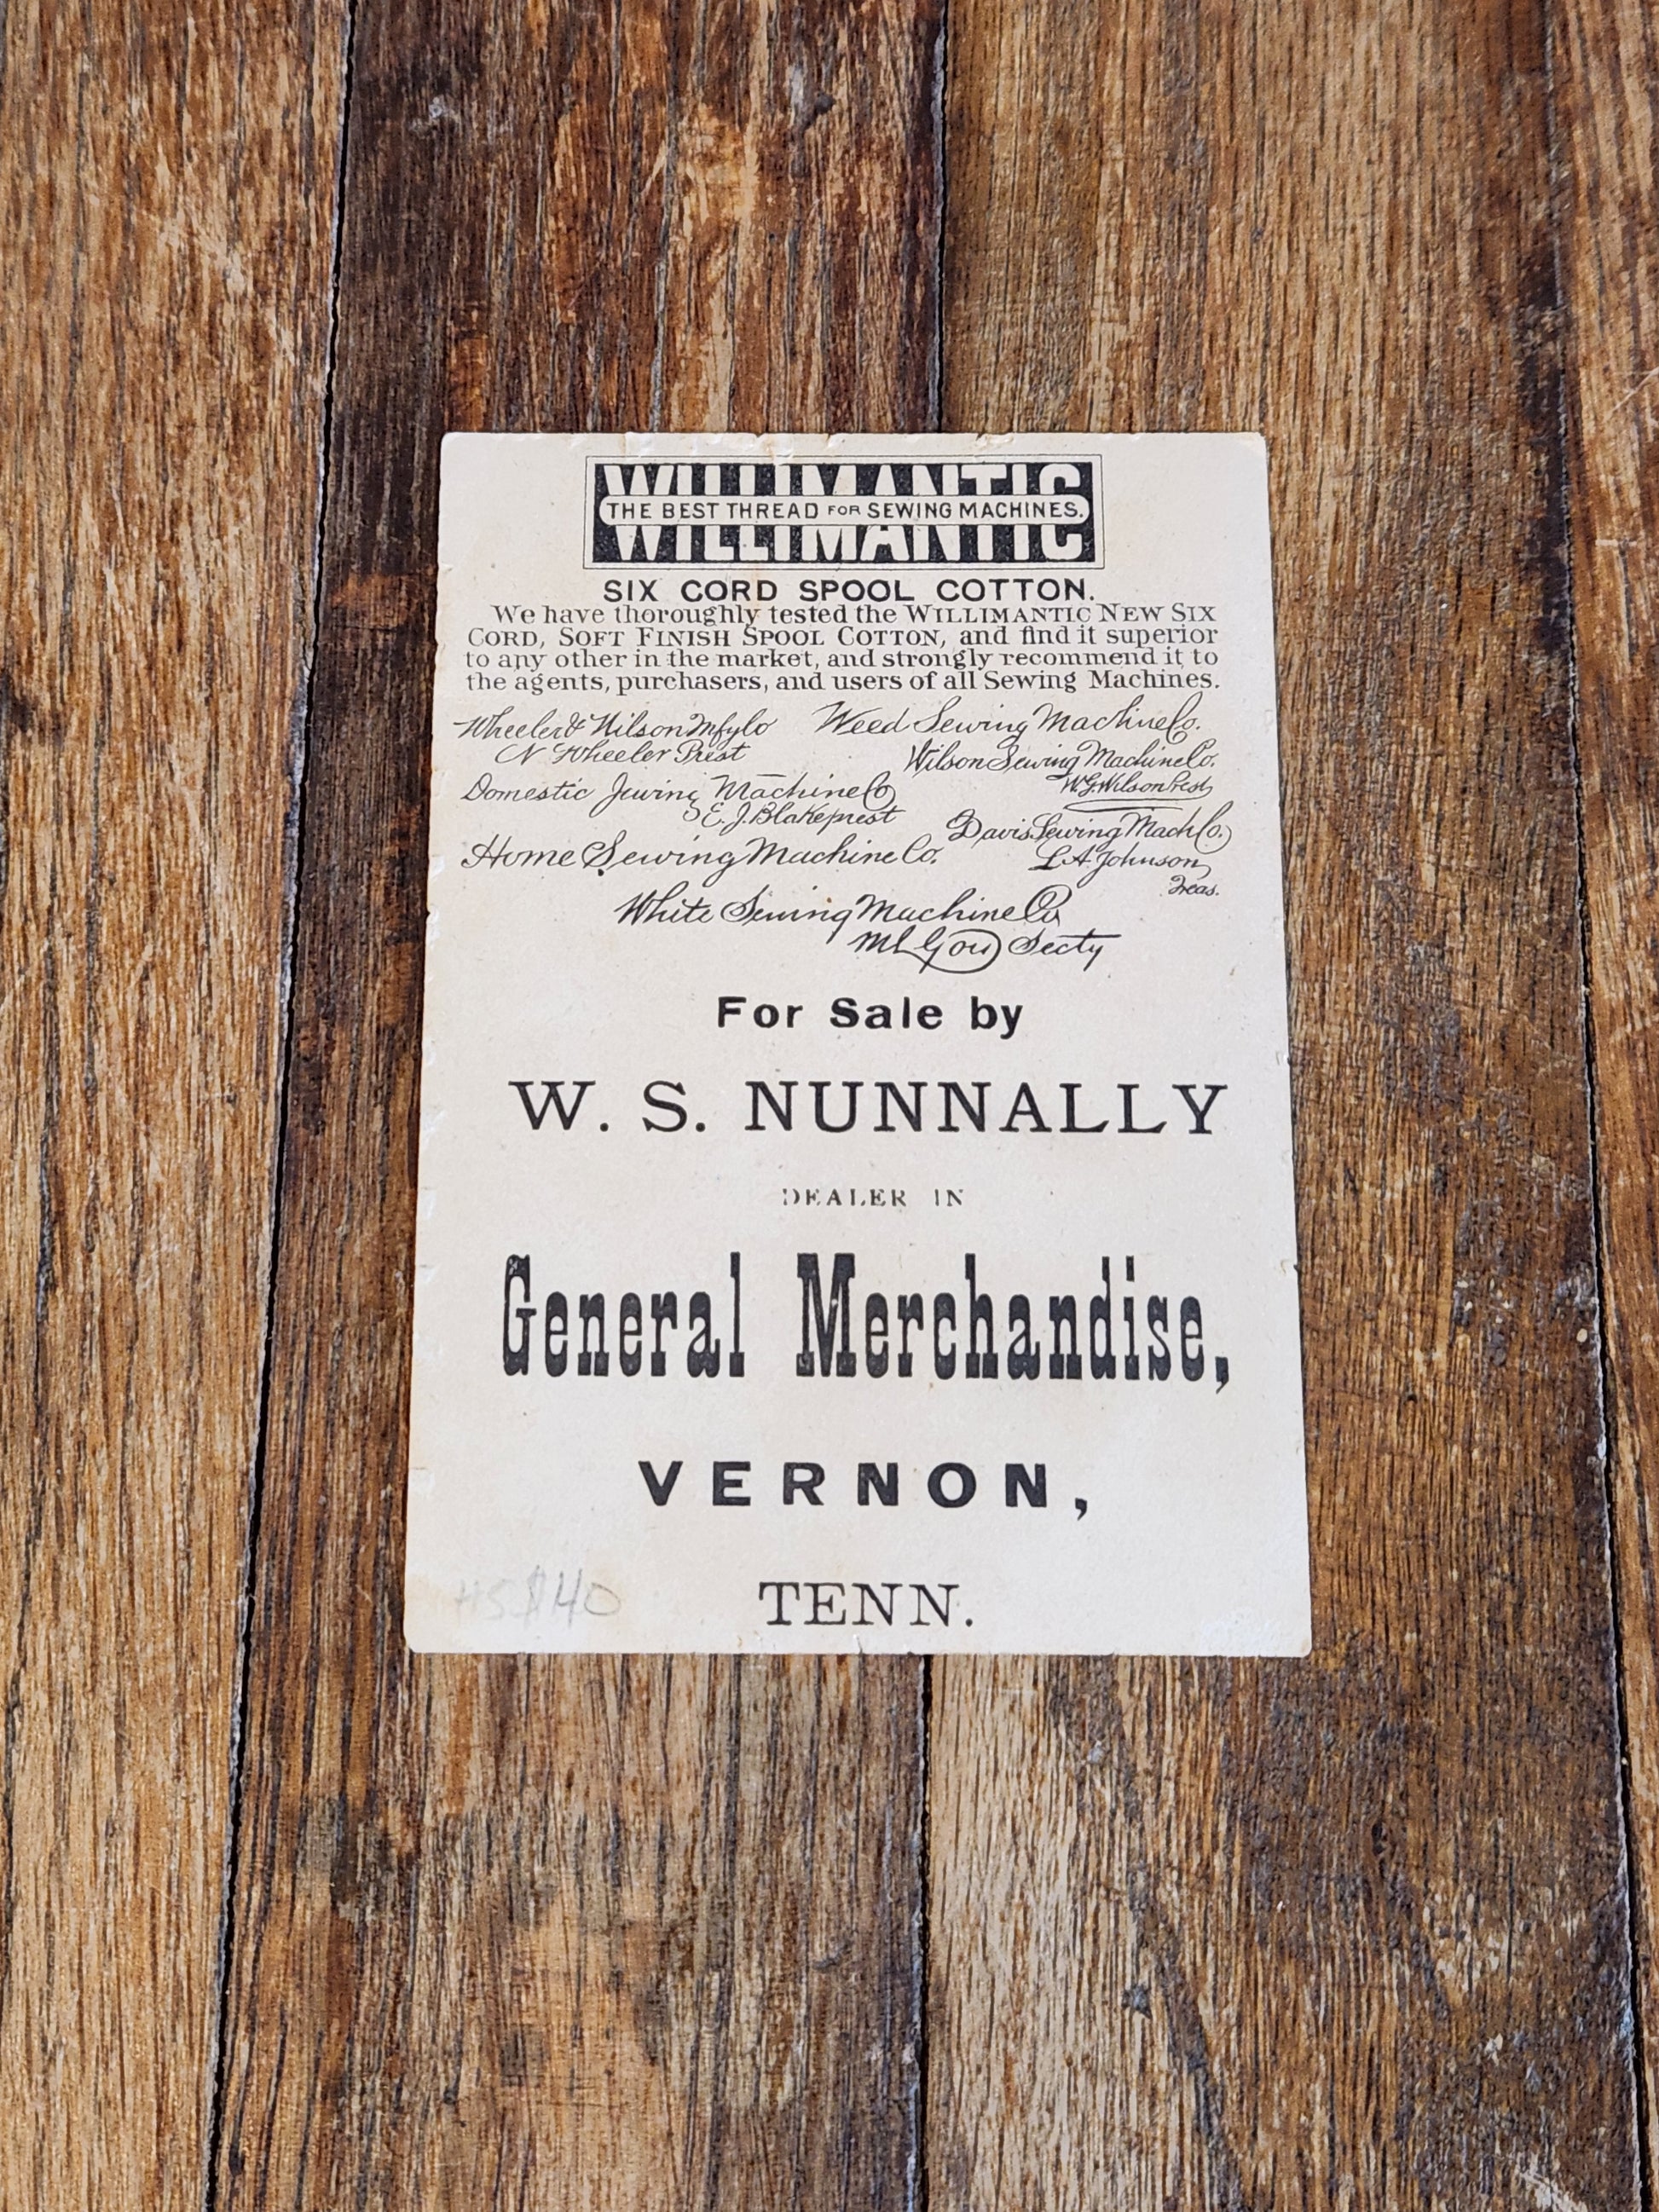 WILLIMANTIC
THE BEST THREAD FOR SEWING MACHINES.
SIX CORD SPOOL COTTON.
We have thoroughly tested the WILLIMANTIC NEW SIX
CORD, SOFT FINISH SPOOL COTTON, and find it superior
to any other in the market, and strongly recommend it to
the agents, purchasers, and users of all Sewing Machines.
Wheeler & Wilson Mfg Co
N Wheeler Prest
Weed Sewing Machine Co.
Wilson Sewing Machine Co.
W.G. Wilson Prest
Domestic Sewing Machine Co
E. J. Blake prest
Davis Sewing Mach Co.
L A Johnson
Treas.
Home Sewing Machine Co.
White Sewing Machine Co
Secty
For Sale by
W. S. NUNNALLY
DEALER IN
General Merchandise,
VERNON,
TENN.
$140